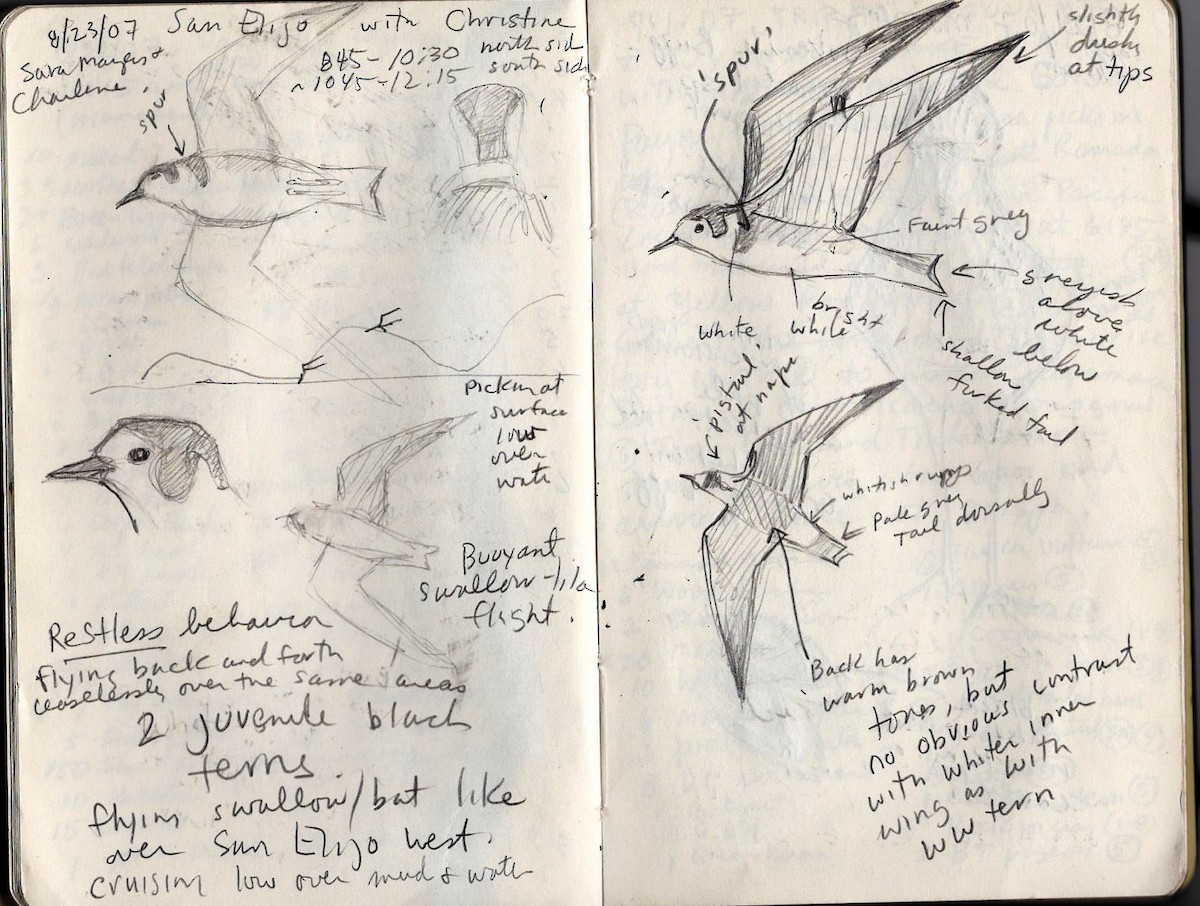 8/23/07 San Elijo with Christine
845-10:30 north side
~1045-12:15 south side
Sara Mayers &
Charlene.
spur
Pickin at
surface
low
over
wate
Buoyant
swallow-like
flight.
Restless behavior
flying back and forth
ceaselessly over the same areas
2 juvenile black
terns.
flyin swallow/bat like
over San Elijo west.
cruisin low over mud & water
'spur'
slightly
dusky
at tips
Faint grey
greyish
above
white
below
white
bright
white
shallow
forked tail
'pistail'
at nape
whitish rump
Pale grey
Tail dorsally
Back has
warm brown
tones, but
no obvious contrast
with whiter inner
wing as with
WW tern